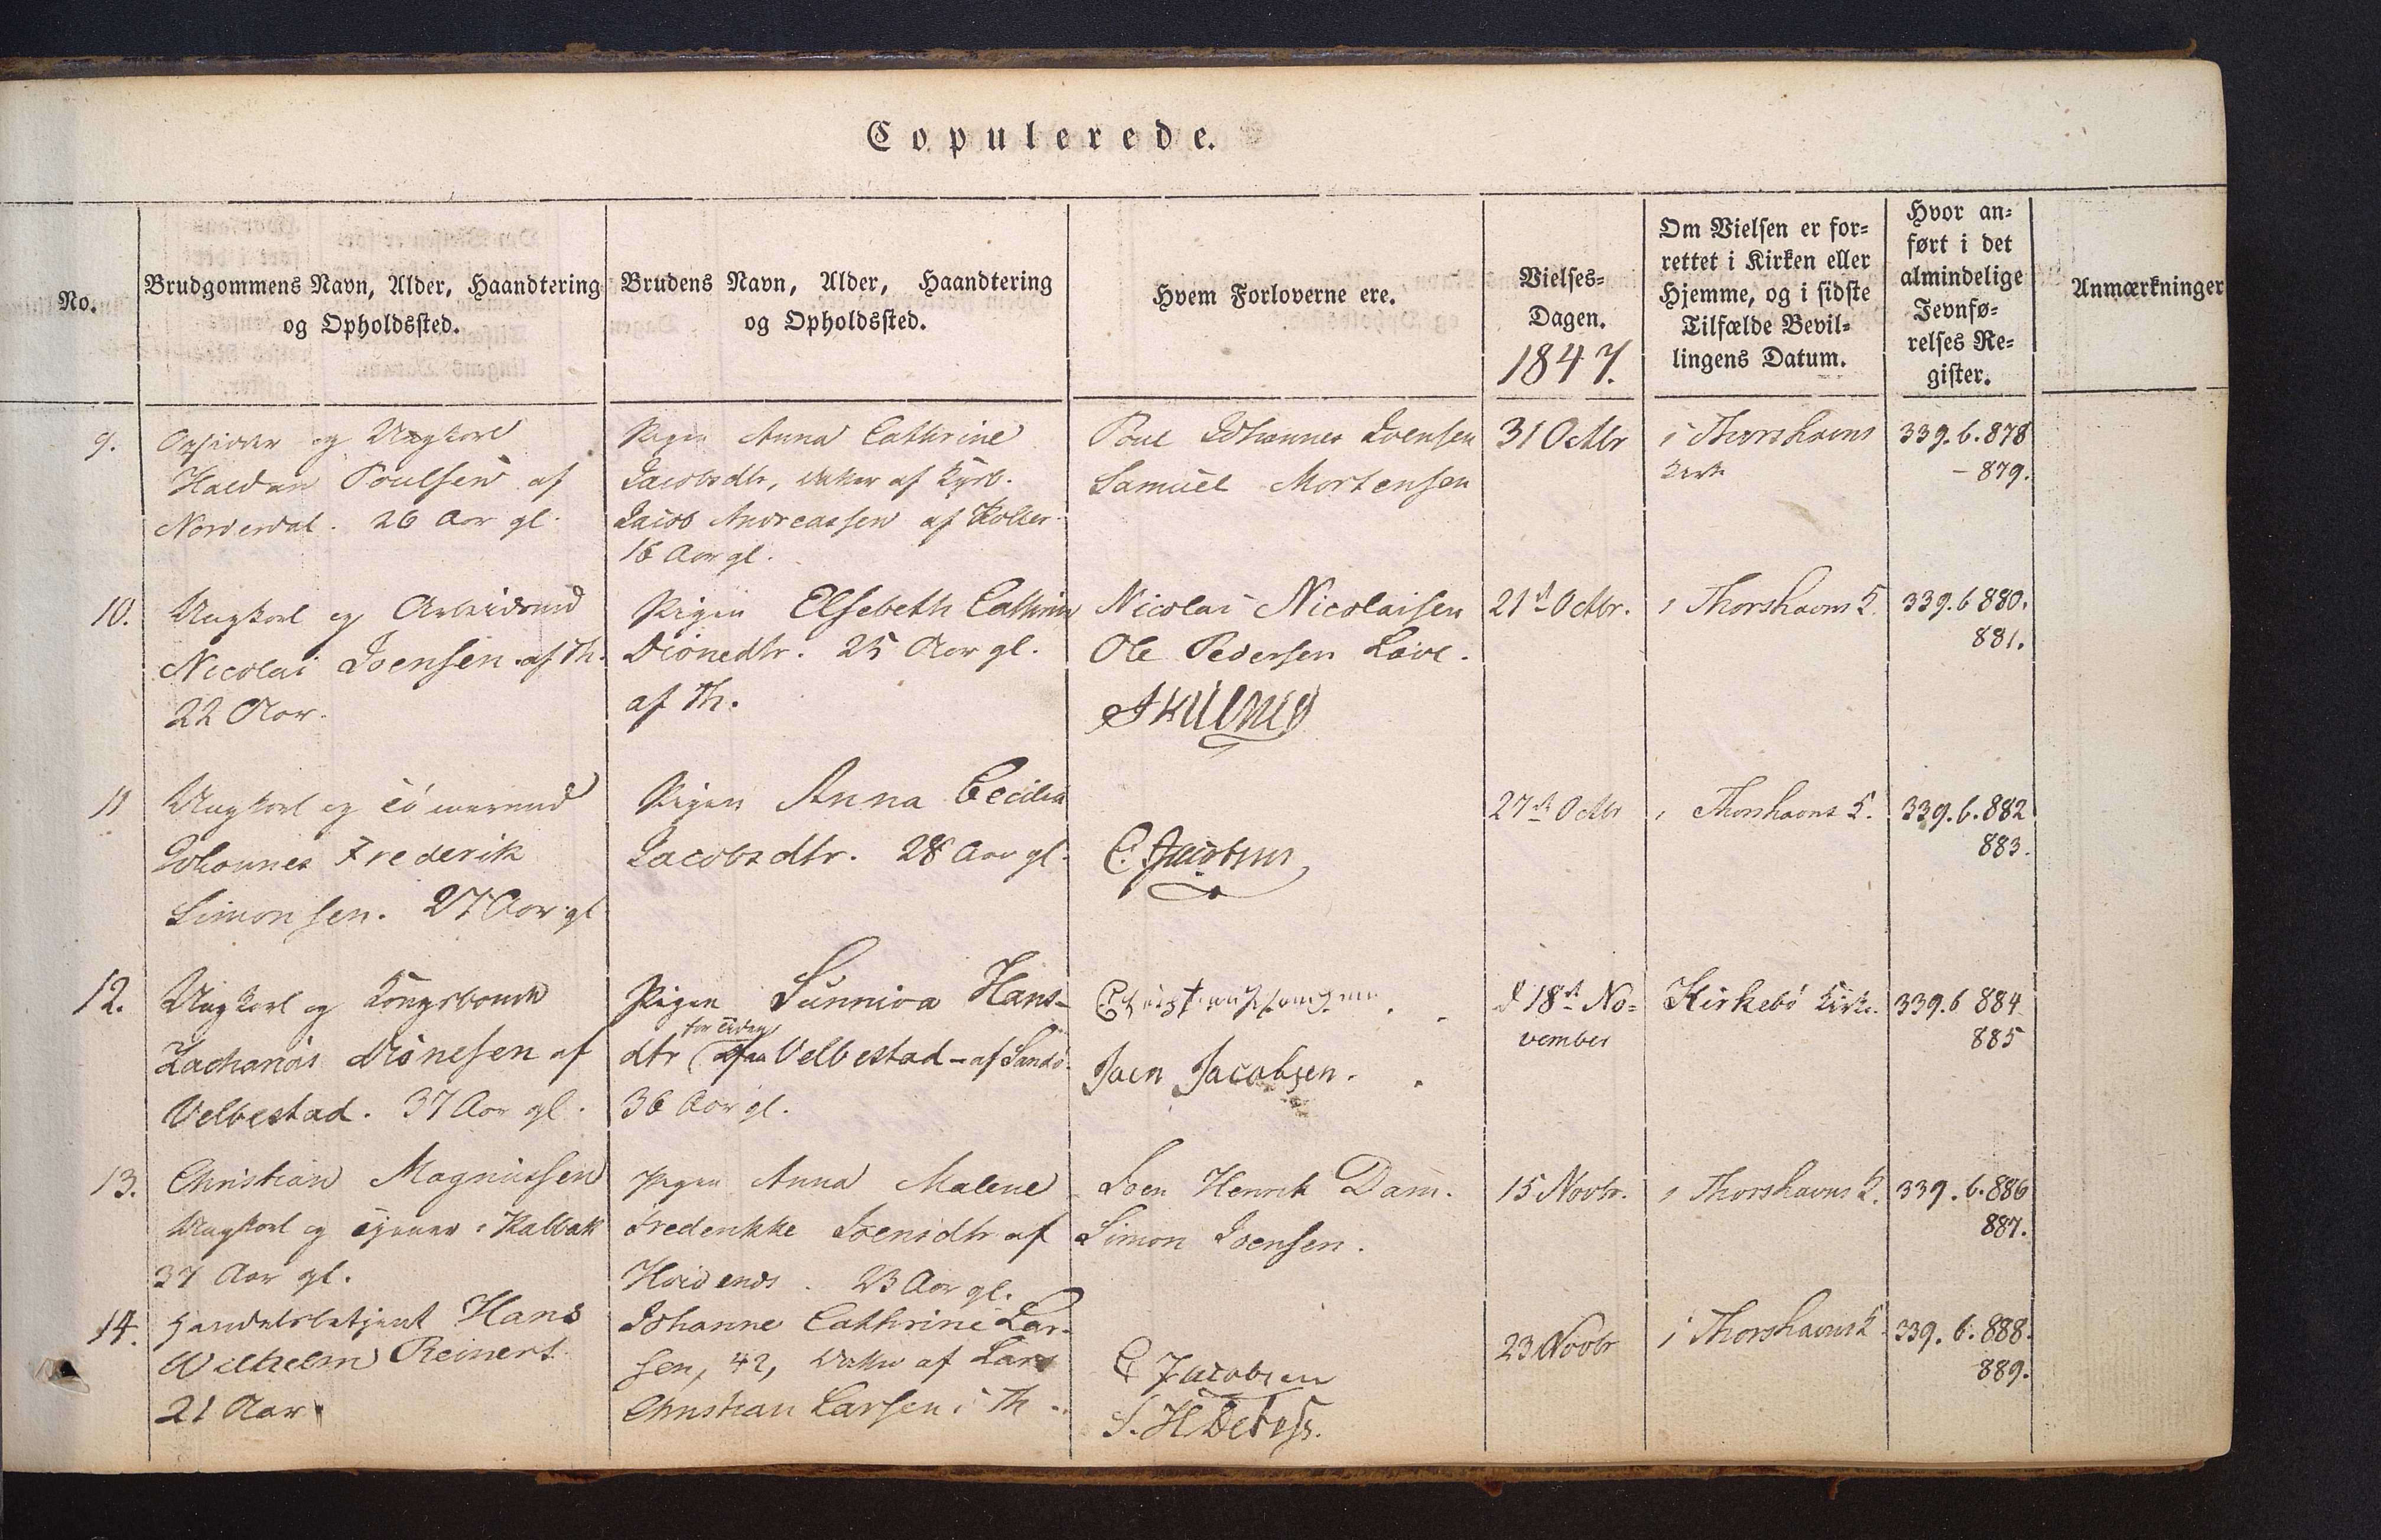 Copulerede.
No.
Brudgommens Navn, Alder, Haandtering
og Opholdssted.
Brudens Navn, Alder, Haandtering
og Opholdssted.
Hvem Forloverne ere.
Vielses=
Dagen.
1847.
Om Vielsen er for=
rettet i Kirken eller
Hjemme, og i sidste
Tilfælde Bevil=
lingens Datum.
Hvor an=
ført i det
almindelige
Jevnfø=
relses Re=
gister.
Anmærkninger
9.
Opsidder og Ungkarl
Haldan Poulsen af
Norderdal. 26 Aar gl.
Pigen Anna Cathrine
Jacobsdtr, Datter af
Jacob Andreassen af Kolter
Aar gl.
Poul Johannes Joensen
Samuel Mortensen
31 Octbr
i Thorshavns
Kirke
339. b. 878
– 879.
10.
Ungkarl og Arbeidsmd
Nicolai Joensen af Th.
22 Aar.
Pigen Elsebeth Cathrine
Dionedtr. 25 Aar gl.
af Th.
Nicolai Nicolaisen
Ole Pedersen
21d Octbr.
i Thorshavns K.
339. b 880.
881.
11
Ungkarl og
Johannes Frederik
Simonsen. 27 Aar gl
Pigen Anna Cecilia
Jacobsdtr. 28 Aar gl.
C. Jacobsen
27d Octbr
i Thorshavns K.
339. b. 882
883.
12.
Ungkarl og Kongsbonde
Zacharias Dionesen af
Velbestad. 37 Aar gl.
Pigen Sunniva Hans-
dtr Velbestad – af Sandö.
36 Aar gl.
Joen Jacobsen.
d 18d No=
vember
Kirkebö Kirke.
339. b 884
885
13.
Christian Magnussen
Ungkarl og Tjener i Kalbak
37 Aar gl.
Pigen Anna Malene
Fredrikke Joensdtr af
Hvidenæs. 23 Aar gl.
Joen Henrik Dam.
Simon Joensen.
15 Novbr.
i Thorshavns K.
339. b. 886
887.
14.
Handelsbetjent Hans
Wilhelm Reinert
21 Aar
Johanne Cathrine Lar-
sen, 42, Datter af Lars
Christian Larsen i Th.
C Jacobsen
S. H. Debess.
23 Novbr
i Thorshavns K.
339. b. 888.
889.